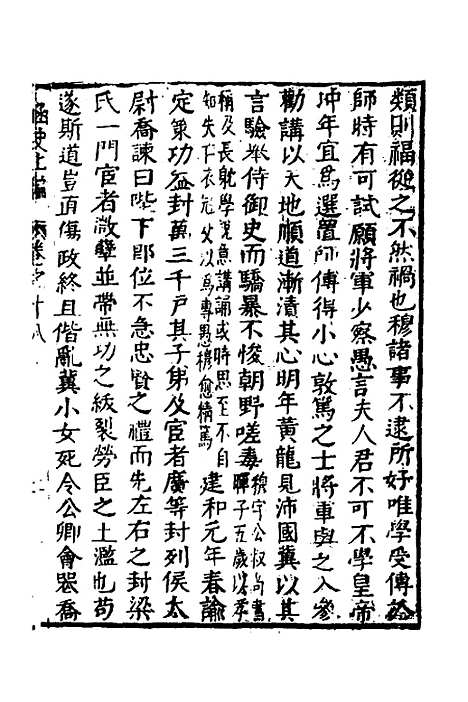 類則福從之不然禍也穆諸事不逮所好唯學受傳於
師時有可試願將軍少察愚言夫人君不可不學皇帝
冲年宜爲選置師傅得小心敦篤之士將軍與之入參
勸講以天地順道漸漬其心明年黃龍見沛國冀以其
言驗舉侍御史而驕暴不悛朝野嗟毒穆字公叔尚書
暉子五歲以孝
稱及長躭學銳意講誦或時思至不自
知失亡衣冠父以爲專愚穆愈精篤建和元年春論
定策功益封萬三千户其子弟及宦者廣等封列侯太
尉喬諫曰陛下即位不急忠賢之禮而先左右之封梁
氏一門宦者微孽並帶無功之紱裂勞臣之土濫也苟
遂斯道豈直傷政終且偕亂冀小女死令公卿會喪喬
函史上編 卷之十八